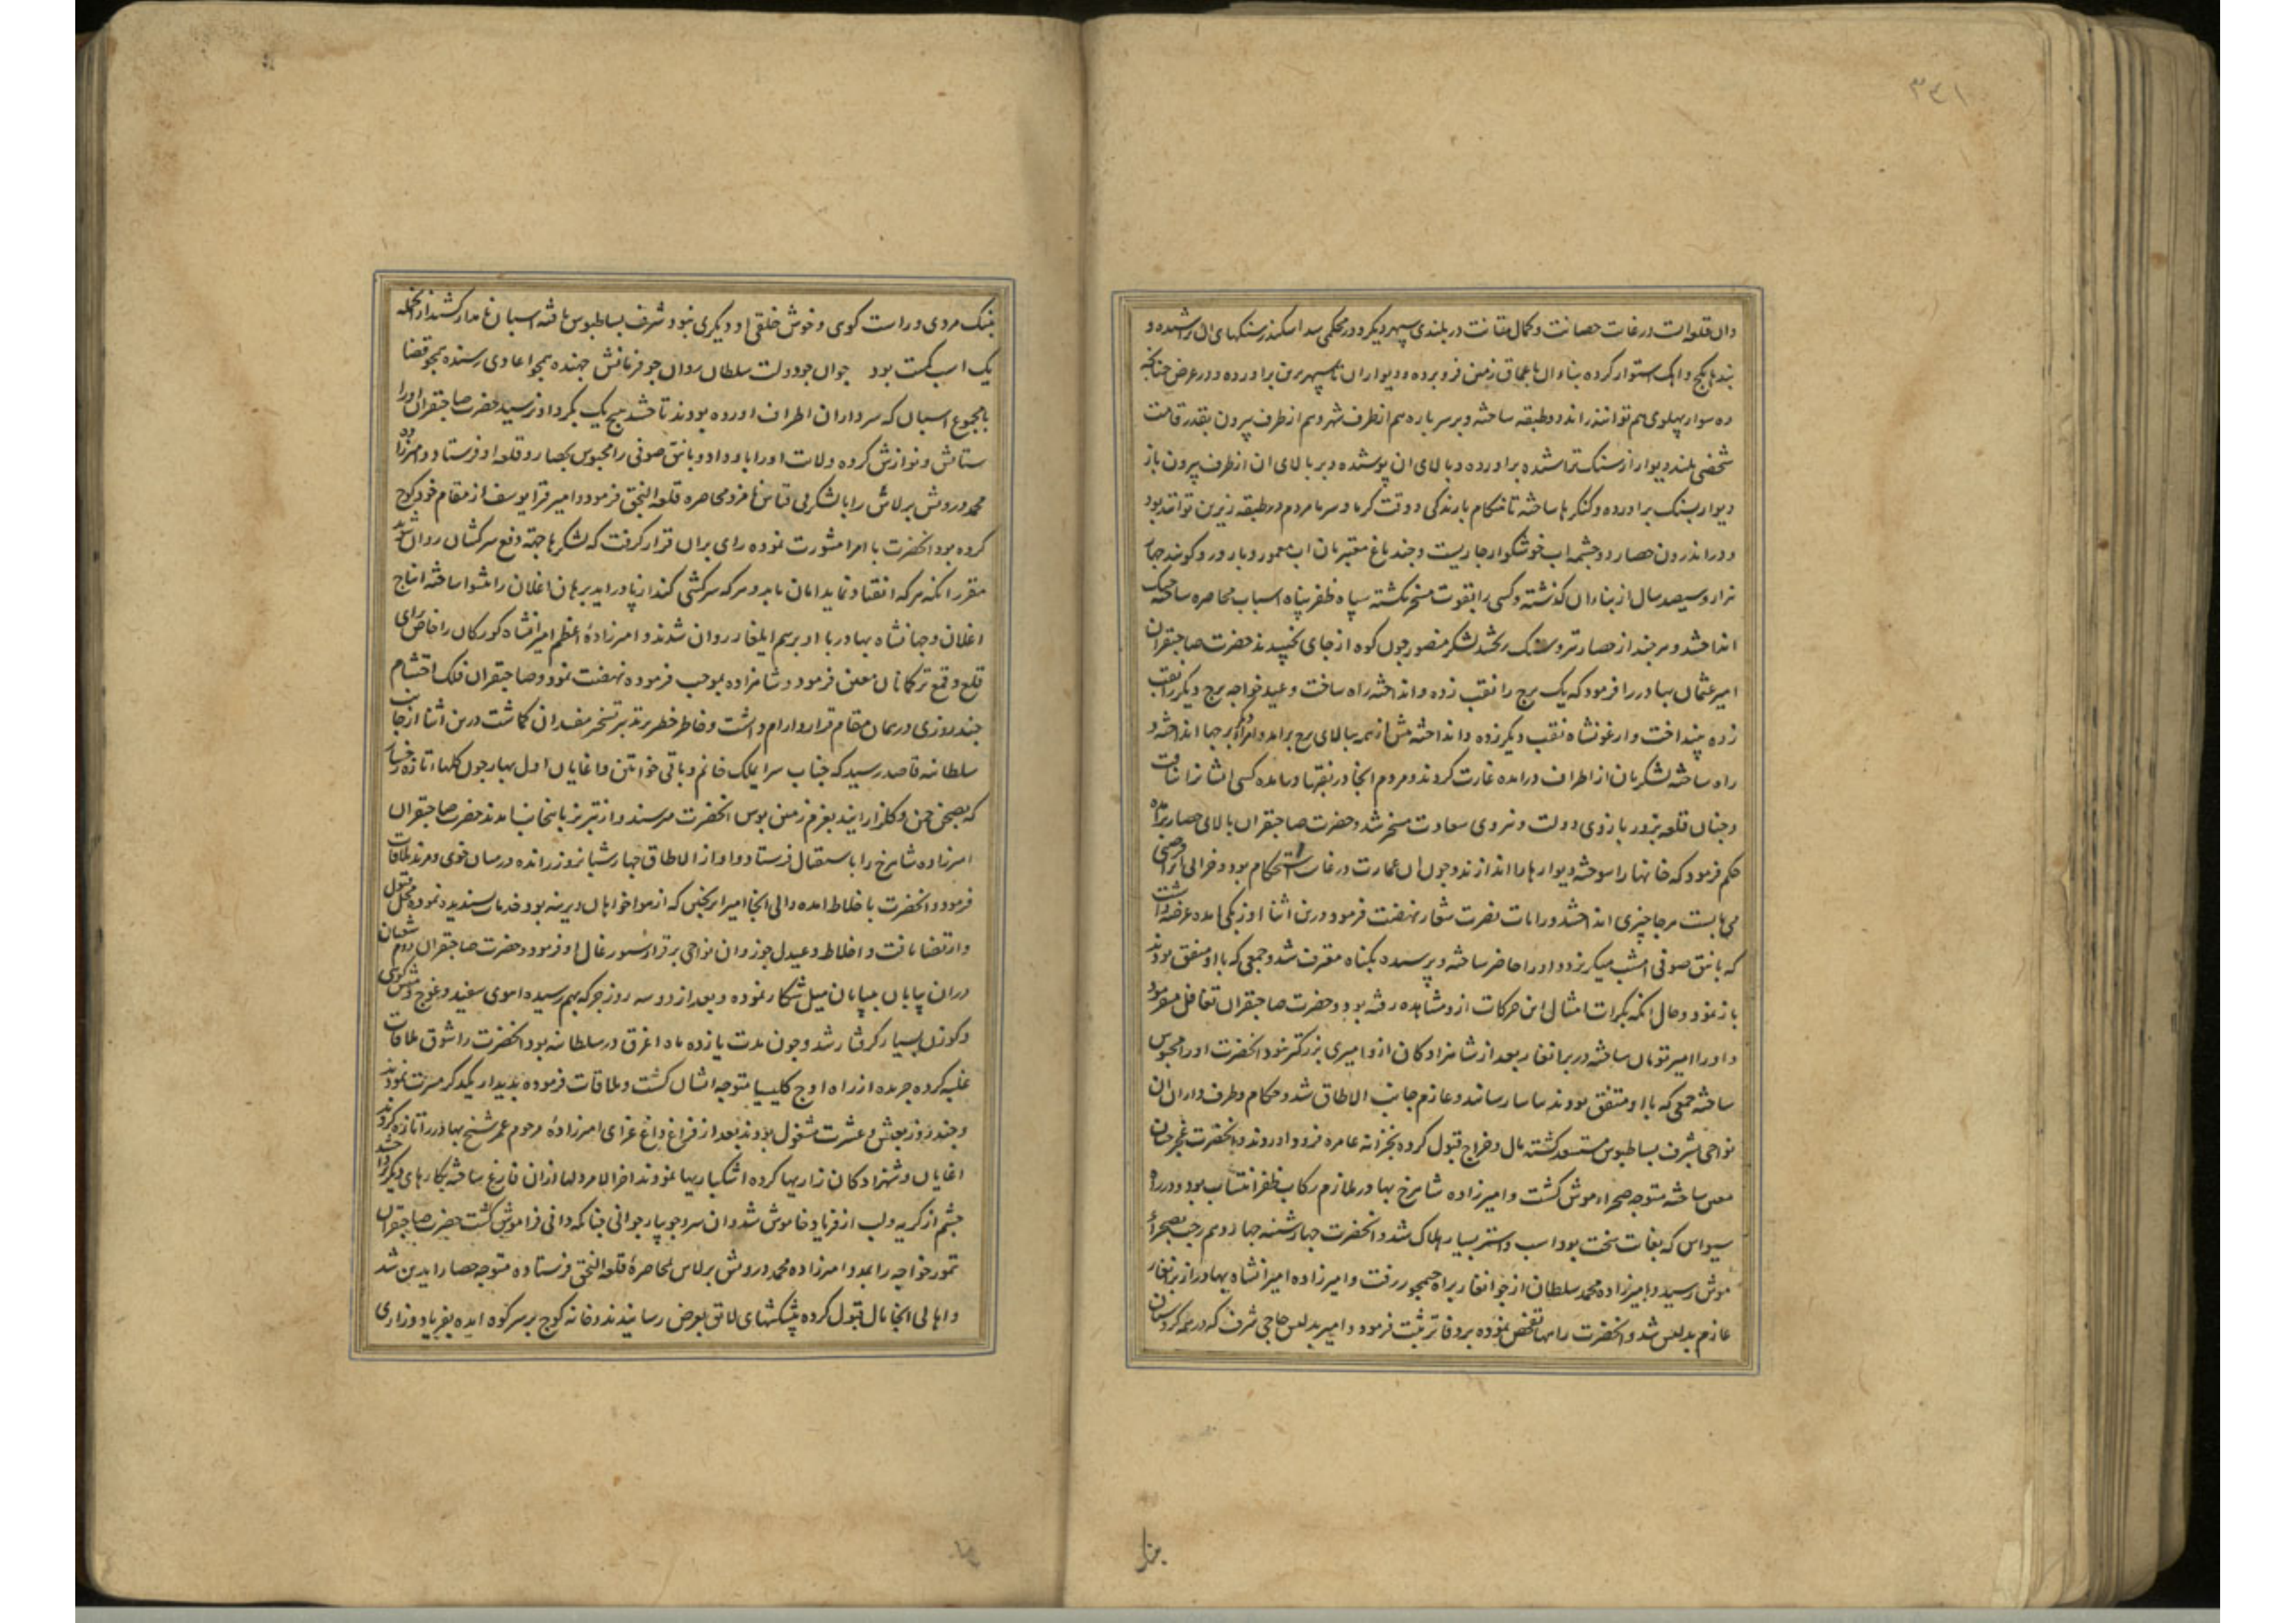 ۳۴۱
وان قلعه‌ایست در غایت حصانت و کمال متانت در بلندی سپهر دیکر و در محکمی سد اسکندر سنکهای ان تراشیده و
بندها بکج و اهک استوار کرده بناء ان باعماق زمین فرو برده و دیوار ان تا سپهر برین براورده و در عرض چنانکه
ده سوار پهلوی هم توانند راند دو طبقه ساخته و بر سر باره هم از طرف شهر و هم از طرف بیرون بقدر قامت
شخصی بلند دیوار از سنک تراشیده براورده و بالای ان پوشیده و بر بالای ان از طرف بیرون باز
دیوار بسنک براورده و کنکرها ساخته تا هنکام بارندکی و وقت کرما و سرما مردم در طبقه زیرین توانند بود
و در اندرون حصار دو چشمه اب خوشکوار جاریست و چند باغ معتبر بان اب معمور و بارور و کویند چهار
هزار و سیصد سال از بناء ان کذشته و کسی را بقوت مسخر نکشته سپاه ظفر پناه اسباب محاصره ساخته جنک
انداختند و هر چند از حصار تیر و سنک ریختند لشکر منصور چون کوه از جای نجنبیدند حضرت صاحبقران
امیر عثمان بهادر را فرمود که یک برج را نقب زده و انداخته راه ساخت و عید خواجه برج دیکر را نقب
زده بینداخت و ارغونشاه نقب دیکر زده و انداخته پیش از همه ببالای برج برامد و امراء دیکر برجها انداخته و
راه ساخته لشکریان از اطراف درامده غارت کردند و مردم انجا در نقبها درمانده کسی ایشانرا نیافت
و چنان قلعه بزور بازوی دولت و نیروی سعادت مسخر شد و حضرت صاحبقران بالای حصار برامده
حکم فرمود که خانها را سوخته دیوارها را اندازند و چون ان عمارت در غایت استحکام بود و خرابی انرا فرصتی
می‌بایست هر جا چیزی انداختند و رایات نصرت شعار نهضت فرمود و درین اثنا اوزبکی امده عرضه داشت
که یانتق صوفی امشب میکریزد و او را حاضر ساخته و پرسیده بکناه معترف شد و جمعی که با او متفق بودند
باز نمود و حال انکه بکرات امثال این حرکات ازو مشاهده رفته بود و حضرت صاحبقران تغافل میفرمود
و او را امیر تومان ساخته در برانغار بعد از شاهزادکان ازو امیری بزرکتر نبود انحضرت او را محبوس
ساخته جمعی که با او متفق بودند بیاسا رسانید و عازم جانب الاطاق شد و حکام و طرف داران ان
نواحی بشرف بساط بوس مستسعد کشته مال و خراج قبول کرده بخزانه عامره فرود اوردند و انحضرت غجرجیان
معین ساخته متوجه صحراء موش کشت و امیرزاده شاهرخ بهادر ملازم رکاب ظفر انتساب بود و در راه
سیواس که بغایت سخت بود اسب و استر بسیار هلاک شد و انحضرت چهارشنبه چهاردهم رجب بصحراء
موش رسید و امیرزاده محمد سلطان از جوانغار براه جمجور رفت و امیرزاده امیرانشاه بهادر از برانغار
عازم بدلیس شد و انحضرت راهها تفحص نموده بر دفاتر ثبت فرمود و امیر بدلیس حاجی شرف که در همه کردستان
بنیک مردی و راست کوی و خوش خلقی او دیکری نبود شرف بساط بوس یافته اسبان نامدار کشید از انجمله
یک اسب کمیت بود جوان چو دولت سلطان روان چو فرمانش جهنده همچو اعادی رسنده همچو قضا
با مجموع اسبان که سرداران اطراف اورده بودند تاختند هیچ یک بکرد او نرسید حضرت صاحبقران او را
ستایش و نوازش کرده ولایت او را باو داد و یانتق صوفی را محبوس بحصار و قلعه او فرستاد و امیرزاده
محمد درویش برلاس را با لشکری قیاس نامزد محاصره قلعه النجق فرمود و امیر قرا یوسف از مقام خود کوچ
کرده بود انحضرت با امرا مشورت نموده رای بران قرار کرفت که لشکرها جهة دفع سرکشان روان شوند
مقرر انکه هر که انقیاد نماید امان یابد و هر که سرکشی کند از پا دراید برهان اغلان را پیشوا ساخته ایتاج
اغلان و جهانشاه بهادر با او برسم ایلغار روان شدند و امیرزادهٔ اعظم امیرانشاه کورکان را خاص برای
قلع و قمع ترکمانان معین فرمود و شاهزاده بموجب فرموده نهضت نمود و صاحبقران فلک احتشام
چند روزی در همان مقام قرار و ارام داشت و خاطر خطیر بر تدبیر تسخیر مفسدان کماشت درین اثنا از جانب
سلطانیه قاصد رسید که جناب سرایملک خانم و باقی خواتین و اغایان اول بهار چون کلهاء تازه رخسار
که بصحن چمن و کلزار ایند بعزم زمین بوس انحضرت میرسند و از تبریز باینجانب امدند حضرت صاحبقران
امیرزاده شاهرخ را باستقبال فرستاد و او از الاطاق چهار شبانروز رانده در میان خوی و مرند ملاقات
فرمود و انحضرت باخلاط امده والی انجا امیر که از هواخواهان دیرینه بود خدمات پسندیده نموده محل قبول
و ارتضا یافت و اخلاط و عیدل جوز و ان نواحی برقرار سیورغال او فرمود و حضرت صاحبقران دوم شعبان
دران بیابان بی‌پایان میل شکار نموده و بعد از دو سه روز جرکه بهم رسیده اهوی سفید و غوچ و میش کوهی
و کوزن بسیار کرفتار شد و چون مدت یازده ماه اغرق در سلطانیه بود انحضرت را شوق ملاقات
غلبه کرده جریده از راه اوج کلیسیا متوجه ایشان کشت و ملاقات فرموده بدیدار یکدکر مسرت نمودند
و چند روز بعیش و عشرت مشغول بودند بعد از فراغ داغ عزای امیرزادهٔ مرحوم عمر شیخ بهادر را تازه کردند
اغایان و شهزادکان زاریها کرده اشکباریها نمودند اخر الامر دلها ازان فارغ ساخته بکارهای دیکر پرداختند
چشم از کریه و لب از فریاد خاموش شد و ان سرو جویبار جوانی چنانکه دانی فراموش کشت حضرت صاحبقران
تمور خواجه را بمدد امیرزاده محمد درویش برلاس بمحاصرهٔ قلعه النجق فرستاده متوجه حصار ایدین شد
و اهالی انجا مال قبول کرده پیشکشهای لایق بعرض رسانیدند و خانه کوچ بر سر کوه امده بفریاد و زاری